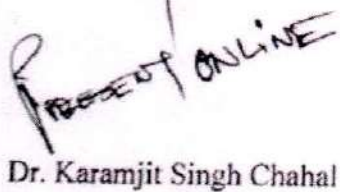 PRESENT ONLINE
Dr. Karamjit Singh Chahal